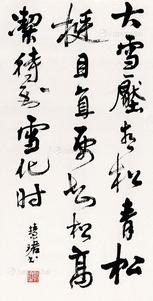 大雪壓青松青松
挺且直要知松高
潔待到雪化时
慧珺书